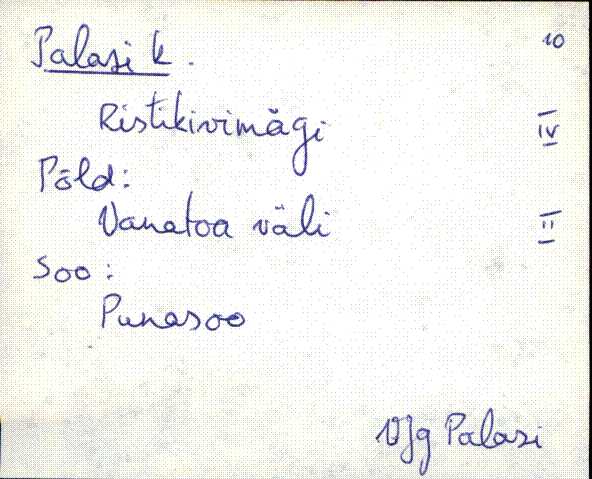 10
Palasi k.
Ristikivimägi IV
Põld:
Vanatoa väli II
Soo:
Punasoo
VJg Palasi